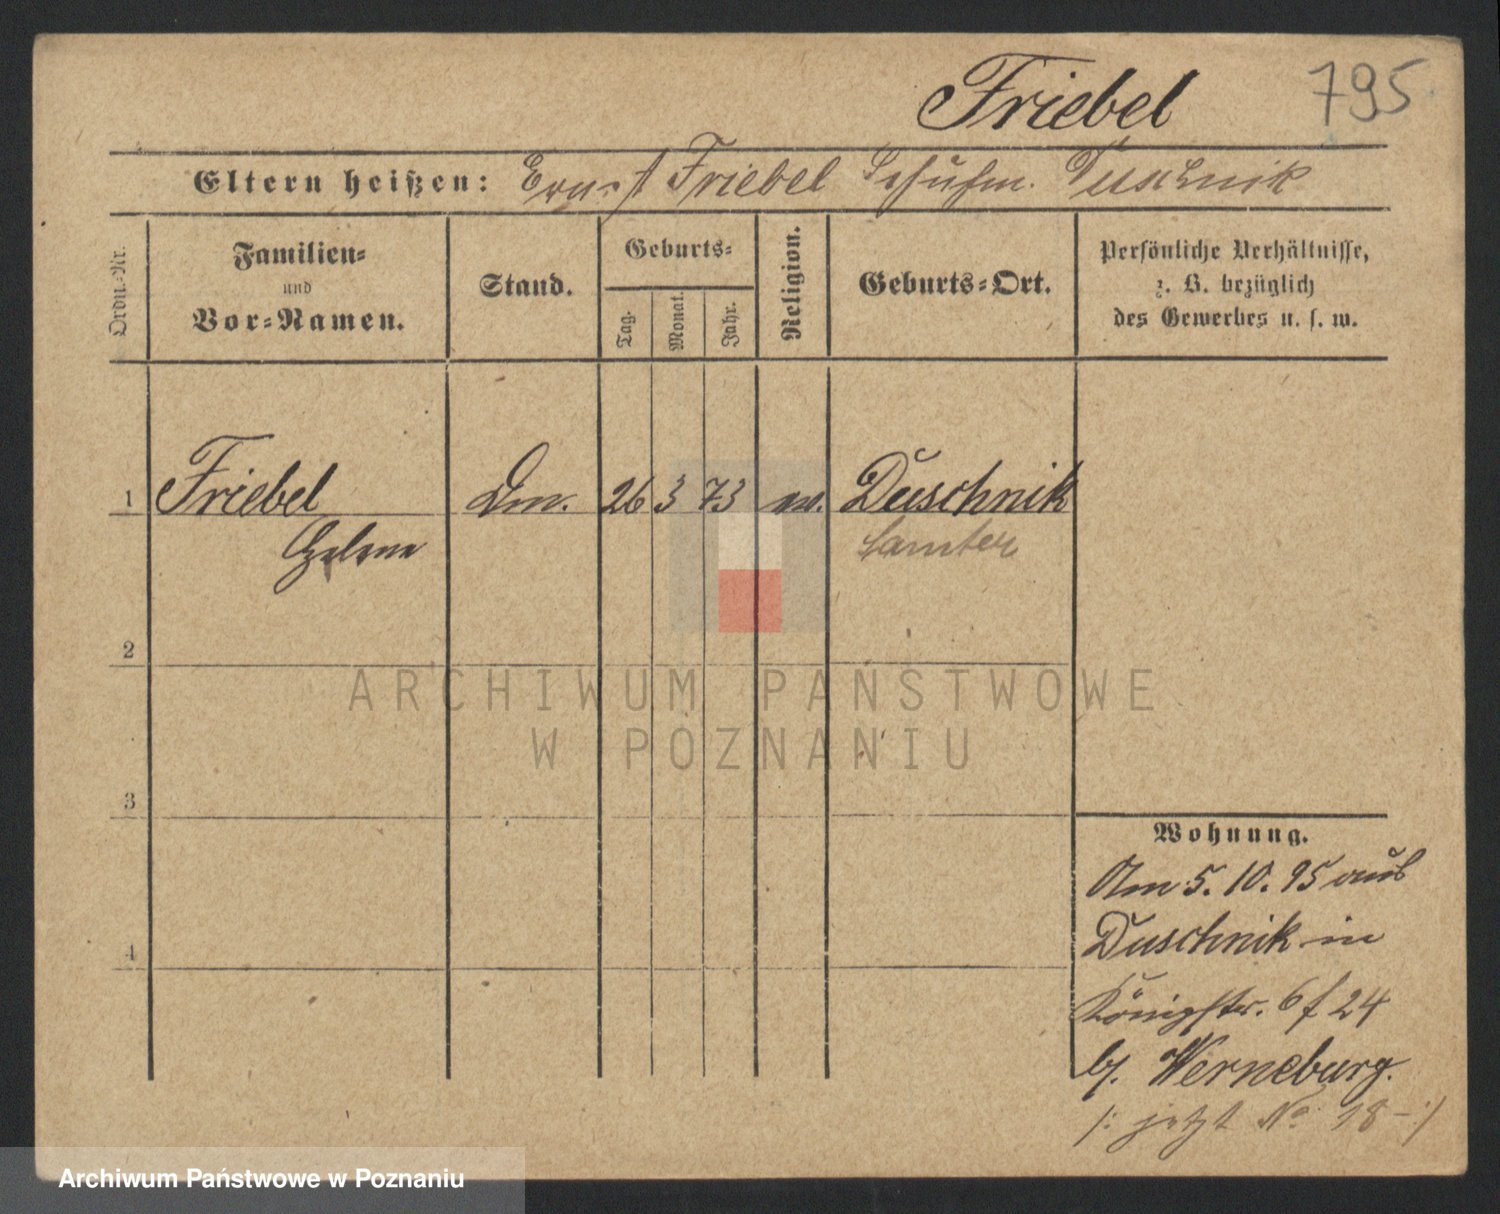 Friebel 795
Eltern heißen: Ernst Friebel Schuhm. Duschnik
Ordn.-Nr.
Familien-
und
Vor-Namen.
Stand.
Geburts-
Tag.
Monat.
Jahr.
Religion.
Geburts-Ort.
Persönliche Verhältnisse,
z. B. bezüglich
des Gewerbes u. s. w.
1 Friebel Dm. 26 3 73 ev. Duschnik
Helene Samter
2
ARCHIWUM PAŃSTWOWE
W POZNANIU
3
4
Wohnung.
Am 5. 10. 95 aus
Duschnik in
Königstr. 6 f 24
bei Werneburg.
/: jetzt No 18 -:/
Archiwum Państwowe w Poznaniu